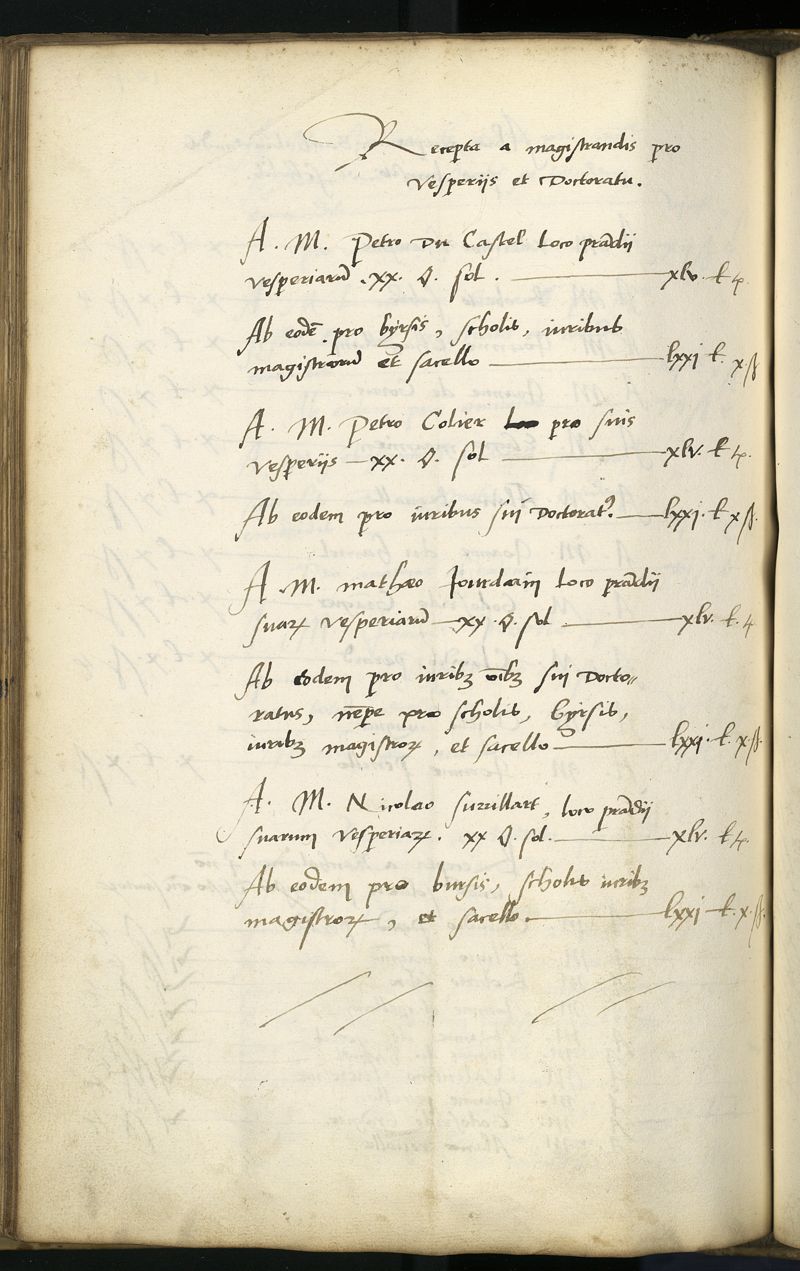 Recepta a magistrandis pro
vesperiis et Doctoratu.
A. M. Petro Du Castel loco prādii
vesperiarū . xx. sol. xlv. l t.
Ab eodē pro byrsis, scholis, iuribus
magistrorū et sacello lxxi l. x ß
A. M. Petro Colier pro suis
vesperiis xx. sol xlv. l t.
Ab eodem pro iuribus sui Doctorat⁹. lxxi. l x ß.
A. M. mathæo Jourdain loco prādii
suaꝝ vesperiarū xx. sol xlv. l. t
Ab eodem pro iuribꝫ oībꝫ sui Docto-
ratus, nēpe pro scholis, byrsis,
iuribꝫ magistroꝝ, et sacello lxxi. l. x. ß.
A. M. Nicolao surrillart, loco prādii
suarum vesperiaꝝ. xx sol. xlv. l t.
Ab eodem pro bursis, scholis iuribꝫ
magistroꝝ, et sacello. lxxi l. x. ß.